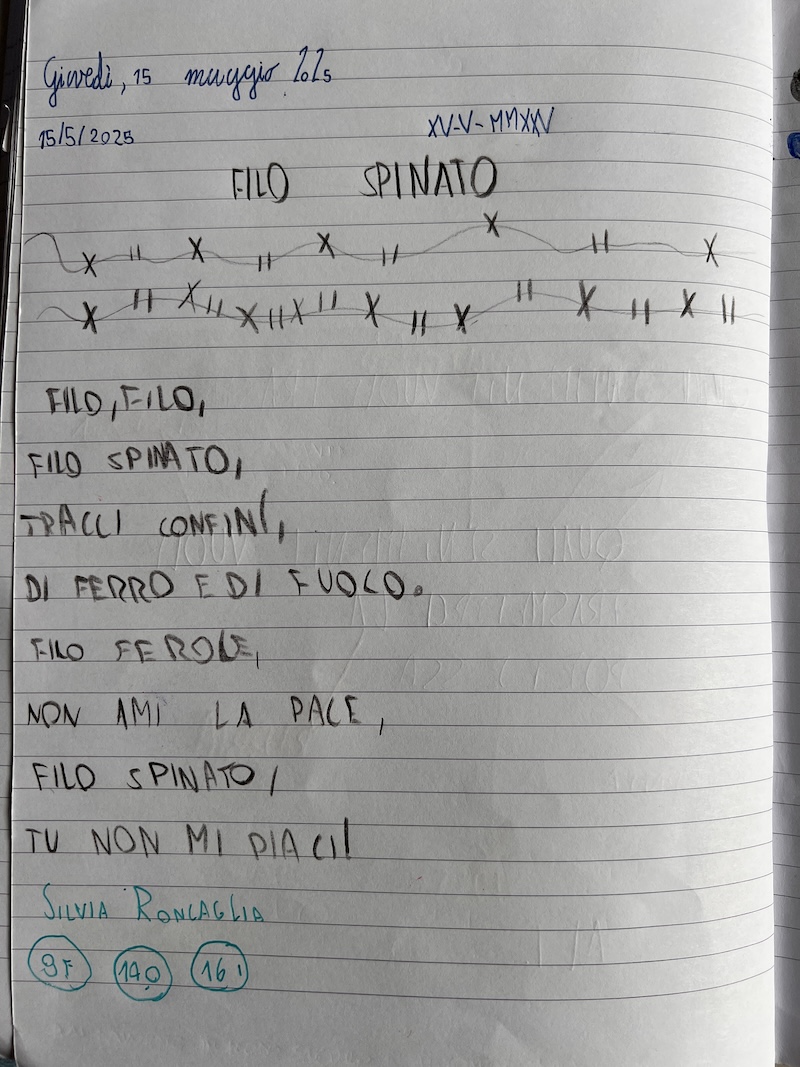 Giovedì, 15 maggio 2025
15/5/2025 XV-V-MMXXV
FILO SPINATO
FILO, FILO,
FILO SPINATO,
TRACCI CONFINI,
DI FERRO E DI FUOCO.
FILO FEROCE,
NON AMI LA PACE,
FILO SPINATO,
TU NON MI PIACI!
SILVIA RONCAGLIA
9F 14O 16I